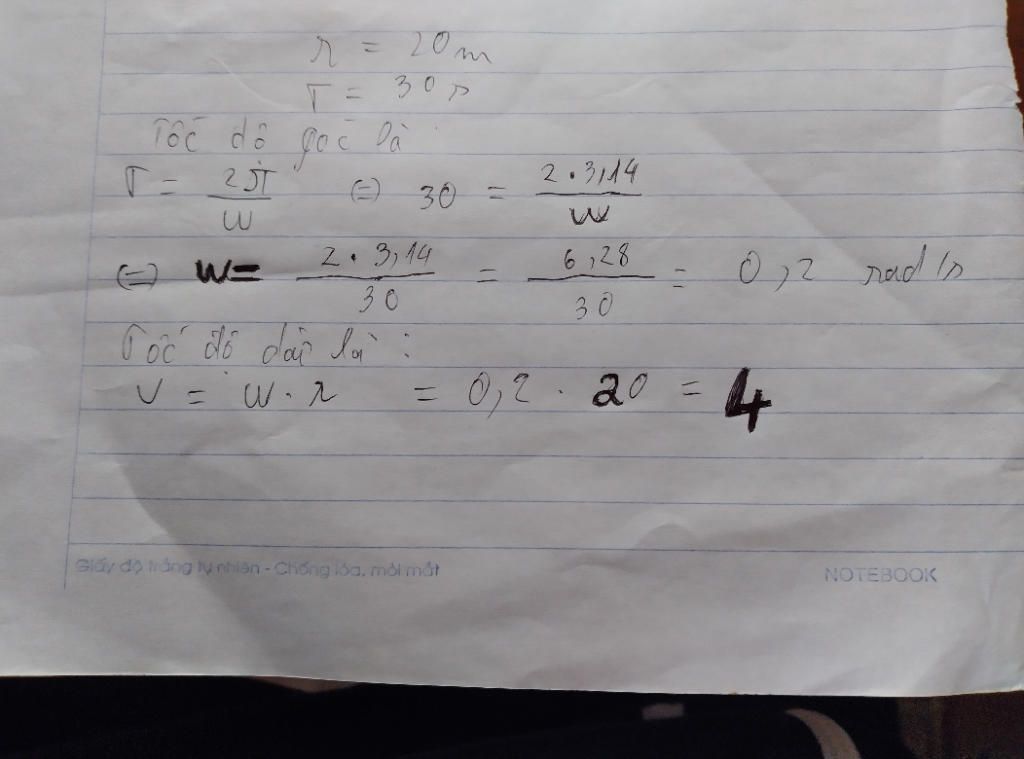 r = 20m
T = 30s
Tốc độ góc là:
T = 2π/ω (=) 30 = 2.3,14/ω
(=) ω = 2.3,14/30 = 6,28/30 = 0,2 rad/s
Tốc độ dài là:
v = ω.r = 0,2 . 20 = 4
Giấy độ trắng tự nhiên - Chống lóa, mỏi mắt NOTEBOOK